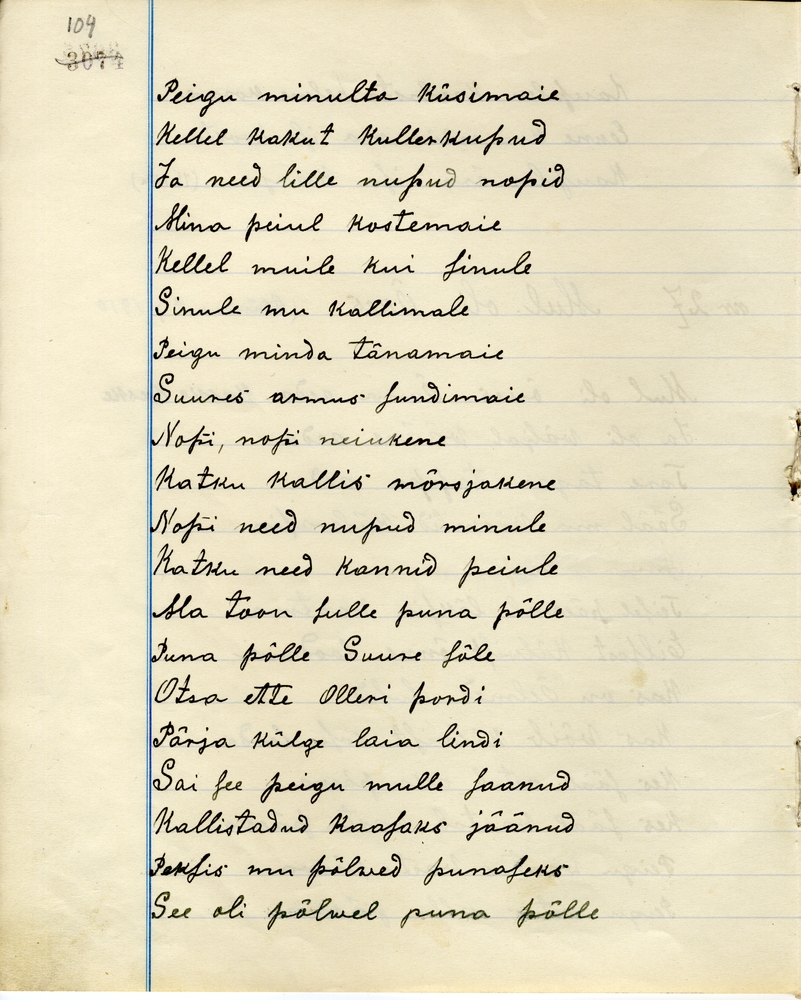 104
3074
Peigu minulta küsimaie
Kellel kakut kullerkupud
Ja need lille nupud nopid
Mina peiul kostemaie
Kellel muile kui sinule
Sinule mu kallimale
Peigu minda tänamaie
Suures armus sundimaie
Nopi, nopi neiukene
Katku kallis mõrsjakene
Nopi need nupud minule
Katku need kannid peiule
Ma toon sulle puna põlle
Puna põlle Suure sõle
Otsa ette Olleri pordi
Pärja külge laia lindi
Sai see peigu mulle saanud
Kallistadud kaasaks jäänud
Peksis mu põlwed punaseks
See oli põlwel puna põlle